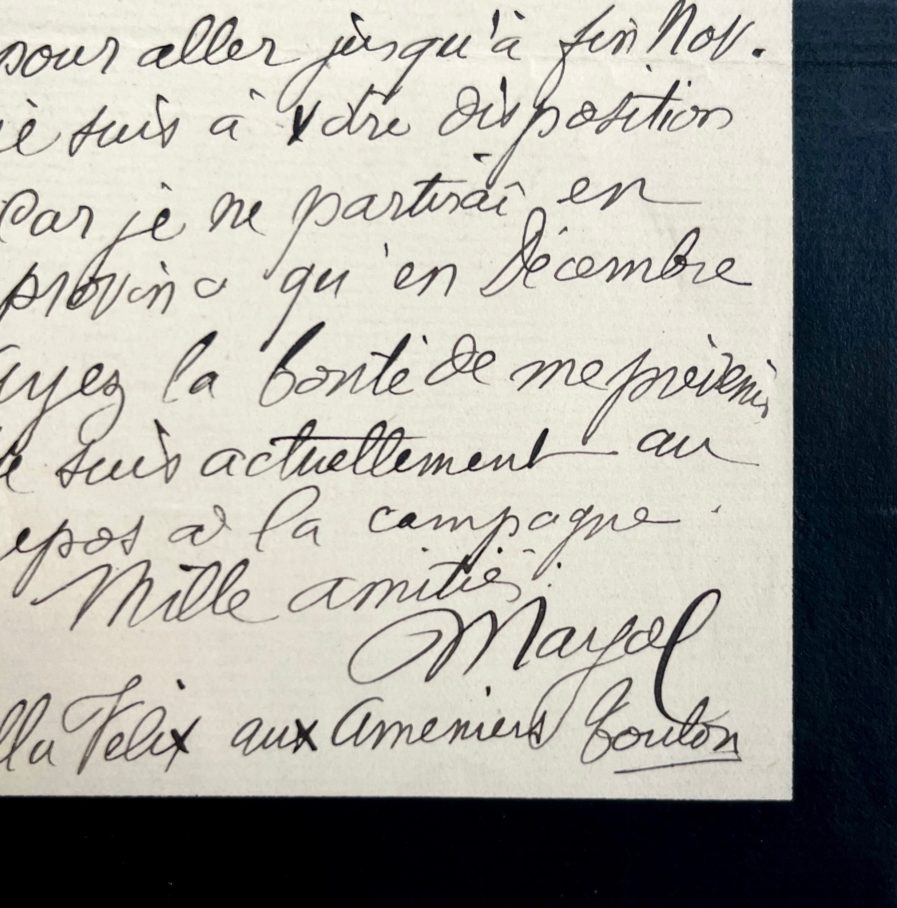 pour aller jusqu'à fin Nov.
je suis à votre disposition
Car je ne partirai en
provinc qu'en Décembre
Ayez la bonté de me prévenir
je suis actuellement au
epos à la campagne.
Mille amitiés.
Mayol
lla Félix aux Ameniers Toulon